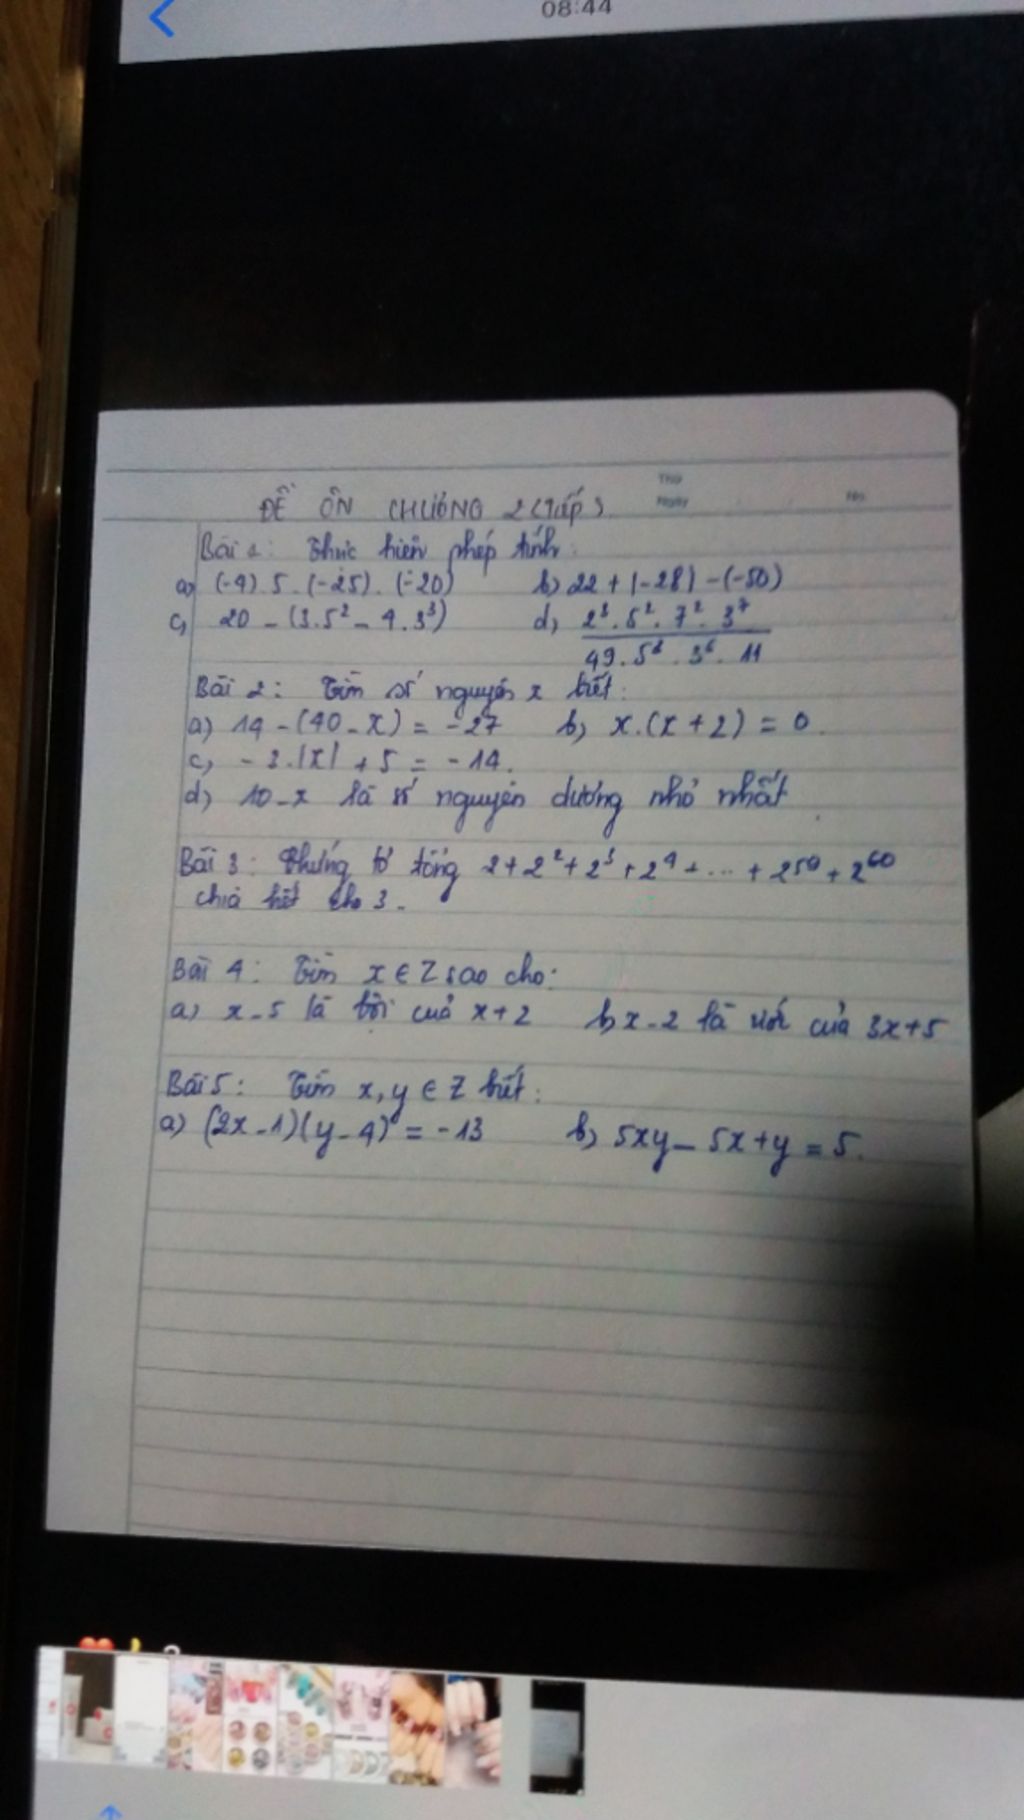 08:44
Thứ
Ngày
ĐỀ ÔN CHƯƠNG 2 (Tiếp)
Bài 1: Thực hiện phép tính:
a) (-4).5.(-25).(-20) b) 22 + (-28) - (-50)
c) 20 - (3.5² - 4.3³) d) 2³.5².7².3⁷
49.5².3⁶.11
Bài 2: Tìm số nguyên x biết:
a) 14 - (40 - x) = -27 b) x.(x + 2) = 0.
c) -3.|x| + 5 = -14.
d) 10 - x là số nguyên dương nhỏ nhất
Bài 3: Chứng tỏ tổng 2 + 2² + 2³ + 2⁴ + ... + 2⁵⁹ + 2⁶⁰
chia hết cho 3.
Bài 4: Tìm x ∈ Z sao cho:
a) x - 5 là bội của x + 2 b) x - 2 là ước của 3x + 5
Bài 5: Tìm x, y ∈ Z biết:
a) (2x - 1)(y - 4) = -13 b) 5xy - 5x + y = 5.